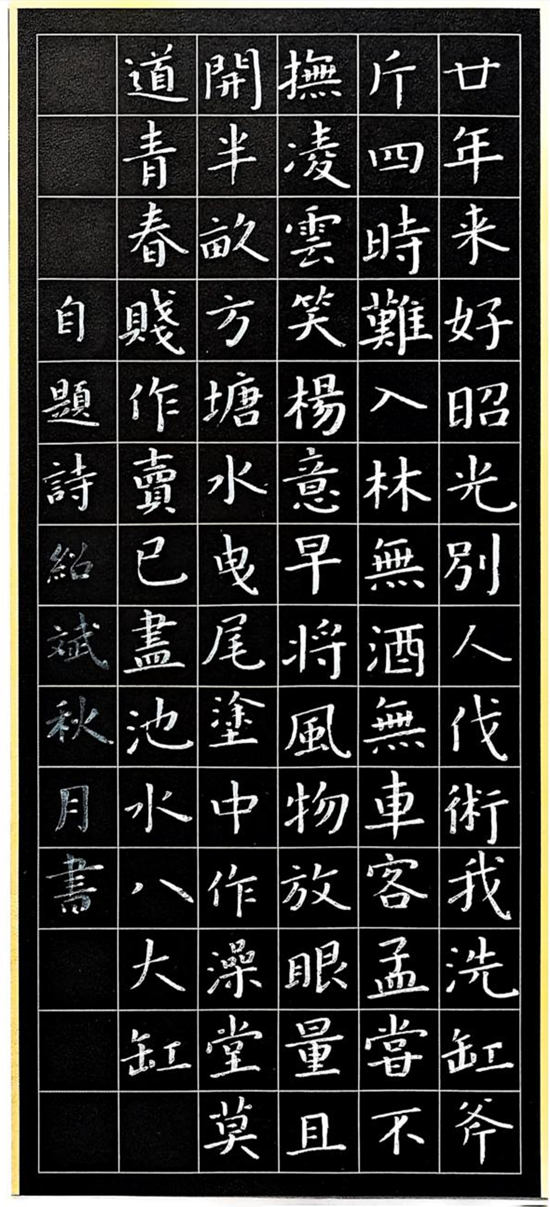 廿年来好昭光別人伐術我洗缸斧
斤四時難入林無酒無車客孟嘗不
撫凌雲笑楊意早將風物放眼量且
開半畝方塘水曳尾塗中作澡堂莫
道青春賤作賣已盡池水八大缸
自題詩紹斌秋月書